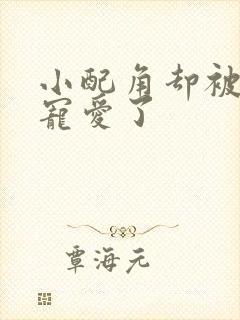 小配角却被
寵愛了
覃海元